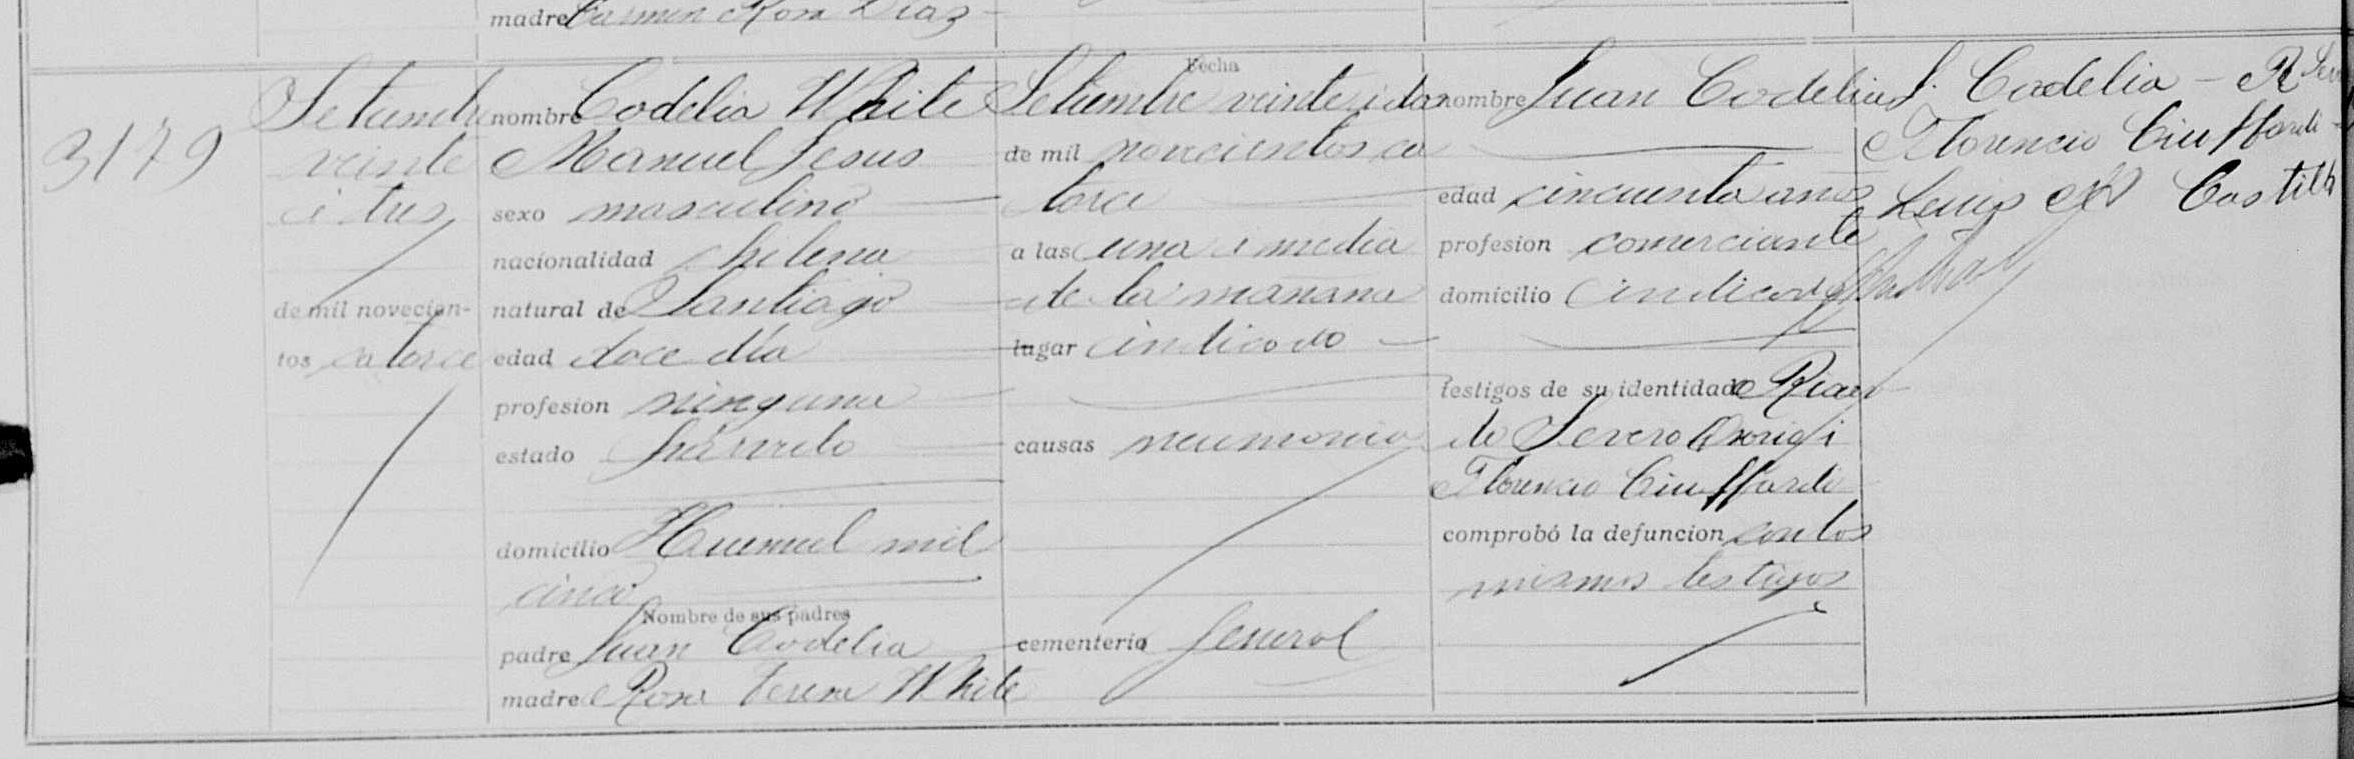 madre Carmen Rosa Diaz
3179
Setiembre
veinte
i tres
de mil novecien-
tos catorce
nombre Codelia White
Manuel Jesus
sexo masculino
nacionalidad chilena
natural de Santiago
edad doce dia
profesion ninguna
estado párvulo
domicilio Huemul mil
cinco
Nombre de sus padres
padre Juan Codelia
madre Rosa Teresa White
Fecha
Setiembre veinte i dos
de mil novecientos ca
torce
a las una i media
de la mañana
lugar indicado
causas neumonia
cementerio Jeneral
nombre Juan Codelia
edad cincuenta años
profesion comerciante
domicilio indicado
testigos de su identidad Ricar
do Severo i
Florencio Ciuffardi
comprobó la defuncion con los
mismos testigos
J. Codelia - R Seve
Florencio Ciuffardi -
Luis Castillo